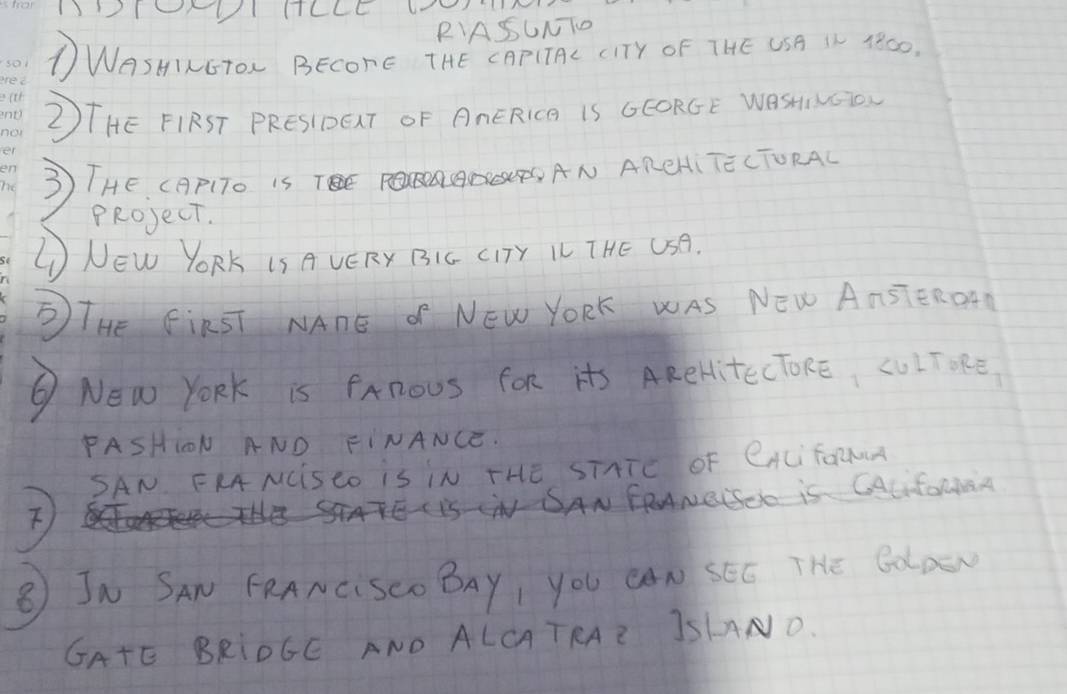 RISPONDI ALLE DOMANDE
RIASSUNTO
1) WASHINGTON BECOME THE CAPITAL CITY OF THE USA IN 1800.
2) THE FIRST PRESIDENT OF AMERICA IS GEORGE WASHINGTON
3) THE CAPITO IS AN ARCHITECTURAL
PROJECT.
4) NEW YORK IS A VERY BIG CITY IN THE USA.
5) THE FIRST NAME OF NEW YORK WAS NEW AMSTERDAM
6) NEW YORK IS FAMOUS FOR ITS ARCHITECTORE, CULTORE,
FASHION AND FINANCE.
SAN FRANCISCO IS IN THE STATE OF CALIFORNIA
7) THE STATE IS IN SAN FRANCISCO IS CALIFORNIA
8) IN SAN FRANCISCO BAY, YOU CAN SEE THE GOLDEN
GATE BRIDGE AND ALCATRAZ ISLAND.